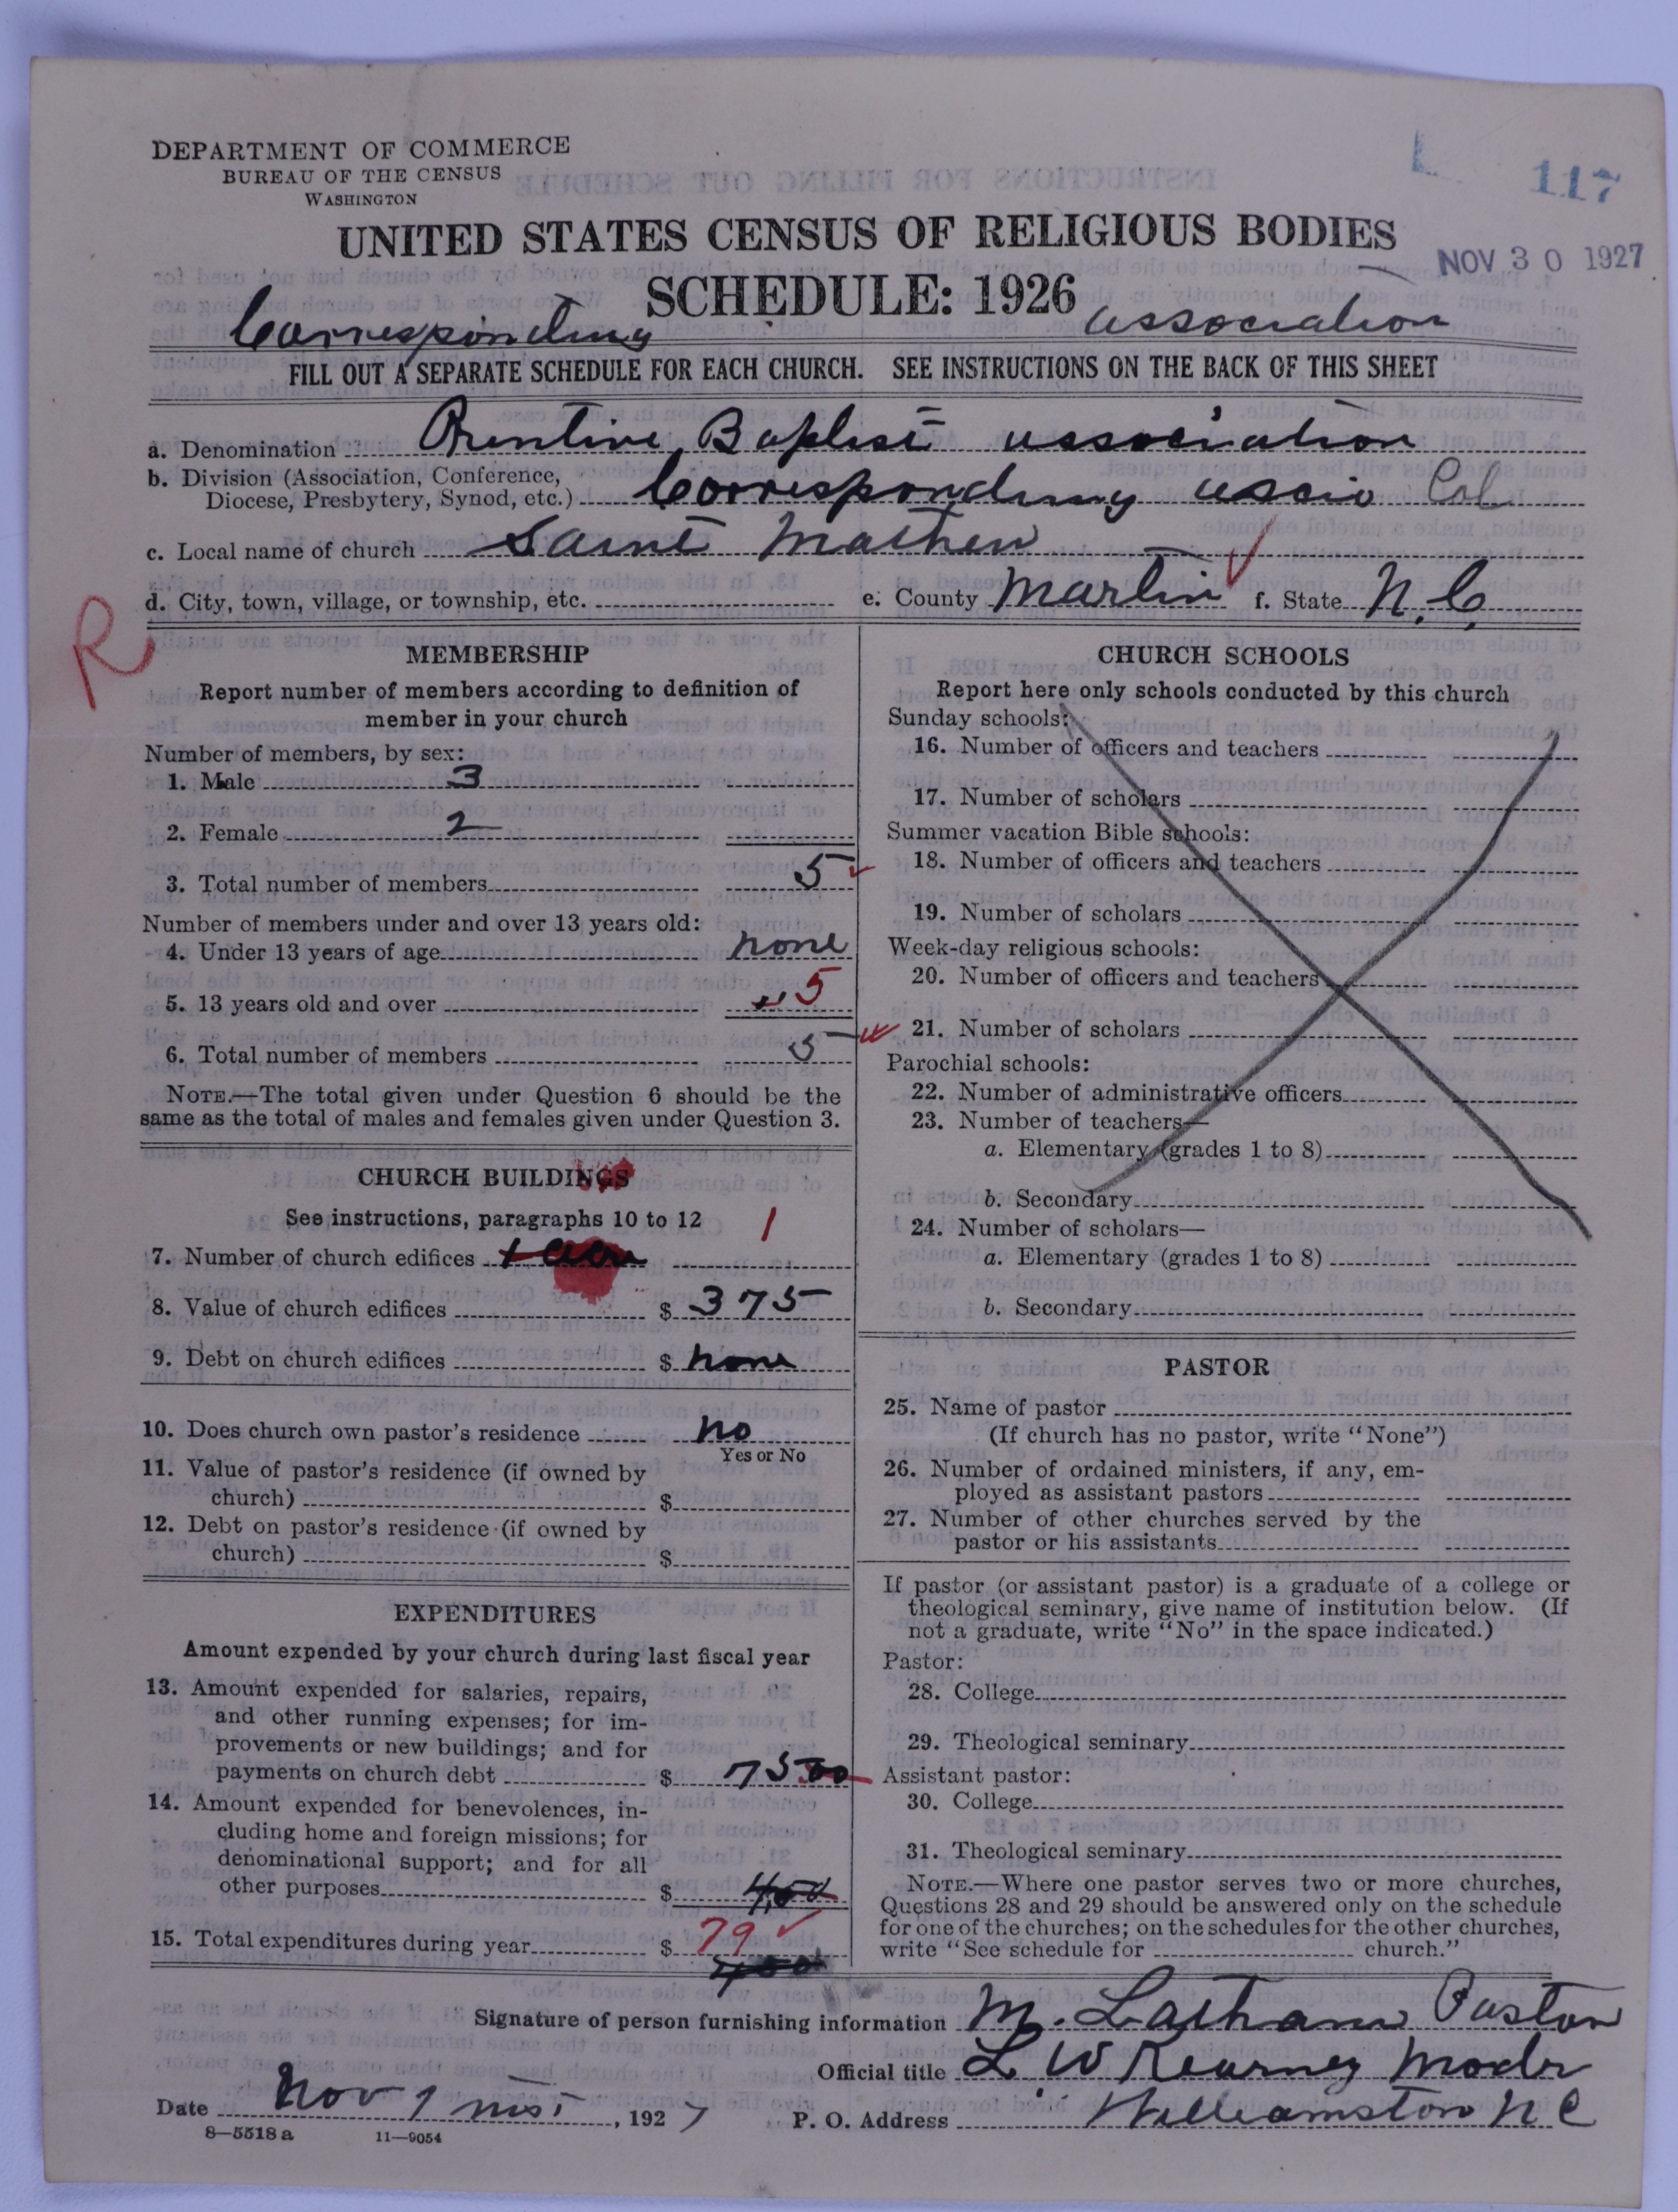 DEPARTMENT OF COMMERCE
BUREAU OF THE CENSUS
WASHINGTON
117
UNITED STATES CENSUS OF RELIGIOUS BODIES
NOV 30 1927
SCHEDULE: 1926
Corresponding association
FILL OUT A SEPARATE SCHEDULE FOR EACH CHURCH. SEE INSTRUCTIONS ON THE BACK OF THIS SHEET
a. Denomination Baptist association
b. Division (Association, Conference,
Diocese, Presbytery, Synod, etc.) Corresponding Col
c. Local name of church Saint Mathew
d. City, town, village, or township, etc. e. County Martin f. State N.C.
R
MEMBERSHIP
Report number of members according to definition of
member in your church
Number of members, by sex:
1. Male 3
2. Female 2
3. Total number of members 5
Number of members under and over 13 years old:
4. Under 13 years of age none
5. 13 years old and over 5
6. Total number of members 5
NOTE.—The total given under Question 6 should be the
same as the total of males and females given under Question 3.
CHURCH BUILDINGS
See instructions, paragraphs 10 to 12
7. Number of church edifices 1
8. Value of church edifices $ 375
9. Debt on church edifices $ none
10. Does church own pastor's residence no
Yes or No
11. Value of pastor's residence (if owned by
church) $
12. Debt on pastor's residence (if owned by
church) $
EXPENDITURES
Amount expended by your church during last fiscal year
13. Amount expended for salaries, repairs,
and other running expenses; for im-
provements or new buildings; and for
payments on church debt $ 7500
14. Amount expended for benevolences, in-
cluding home and foreign missions; for
denominational support; and for all
other purposes $ 400
15. Total expenditures during year $ 79
CHURCH SCHOOLS
Report here only schools conducted by this church
Sunday schools:
16. Number of officers and teachers
17. Number of scholars
Summer vacation Bible schools:
18. Number of officers and teachers
19. Number of scholars
Week-day religious schools:
20. Number of officers and teachers
21. Number of scholars
Parochial schools:
22. Number of administrative officers
23. Number of teachers—
a. Elementary (grades 1 to 8)
b. Secondary
24. Number of scholars—
a. Elementary (grades 1 to 8)
b. Secondary
PASTOR
25. Name of pastor
(If church has no pastor, write "None")
26. Number of ordained ministers, if any, em-
ployed as assistant pastors
27. Number of other churches served by the
pastor or his assistants
If pastor (or assistant pastor) is a graduate of a college or
theological seminary, give name of institution below. (If
not a graduate, write "No" in the space indicated.)
Pastor:
28. College
29. Theological seminary
Assistant pastor:
30. College
31. Theological seminary
NOTE.—Where one pastor serves two or more churches,
Questions 28 and 29 should be answered only on the schedule
for one of the churches; on the schedules for the other churches,
write "See schedule for church."
Signature of person furnishing information M. Latham Pastor
Official title L. W Kearney Modr
Date Nov 1 , 1927 P. O. Address Williamston N C
8—5518 a 11—9054